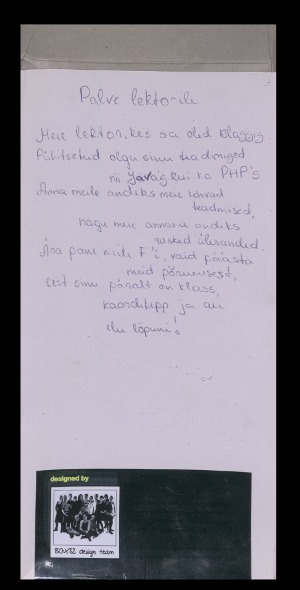 Palve lektorile
Meie lektor, kes sa oled klassis
Pühitsetud olgu sinu teadmised
nii Javas kui ka PHP's
Anna meile andeks meie kehvad
teadmised,
nagu meie anname andeks
rasked ülesanded.
Ära pane meile F'i, vaid päästa
meid põrumisest,
sest sinu päralt on klass,
kaardikepp ja au
elu lõpuni!
designed by
80x82 design team